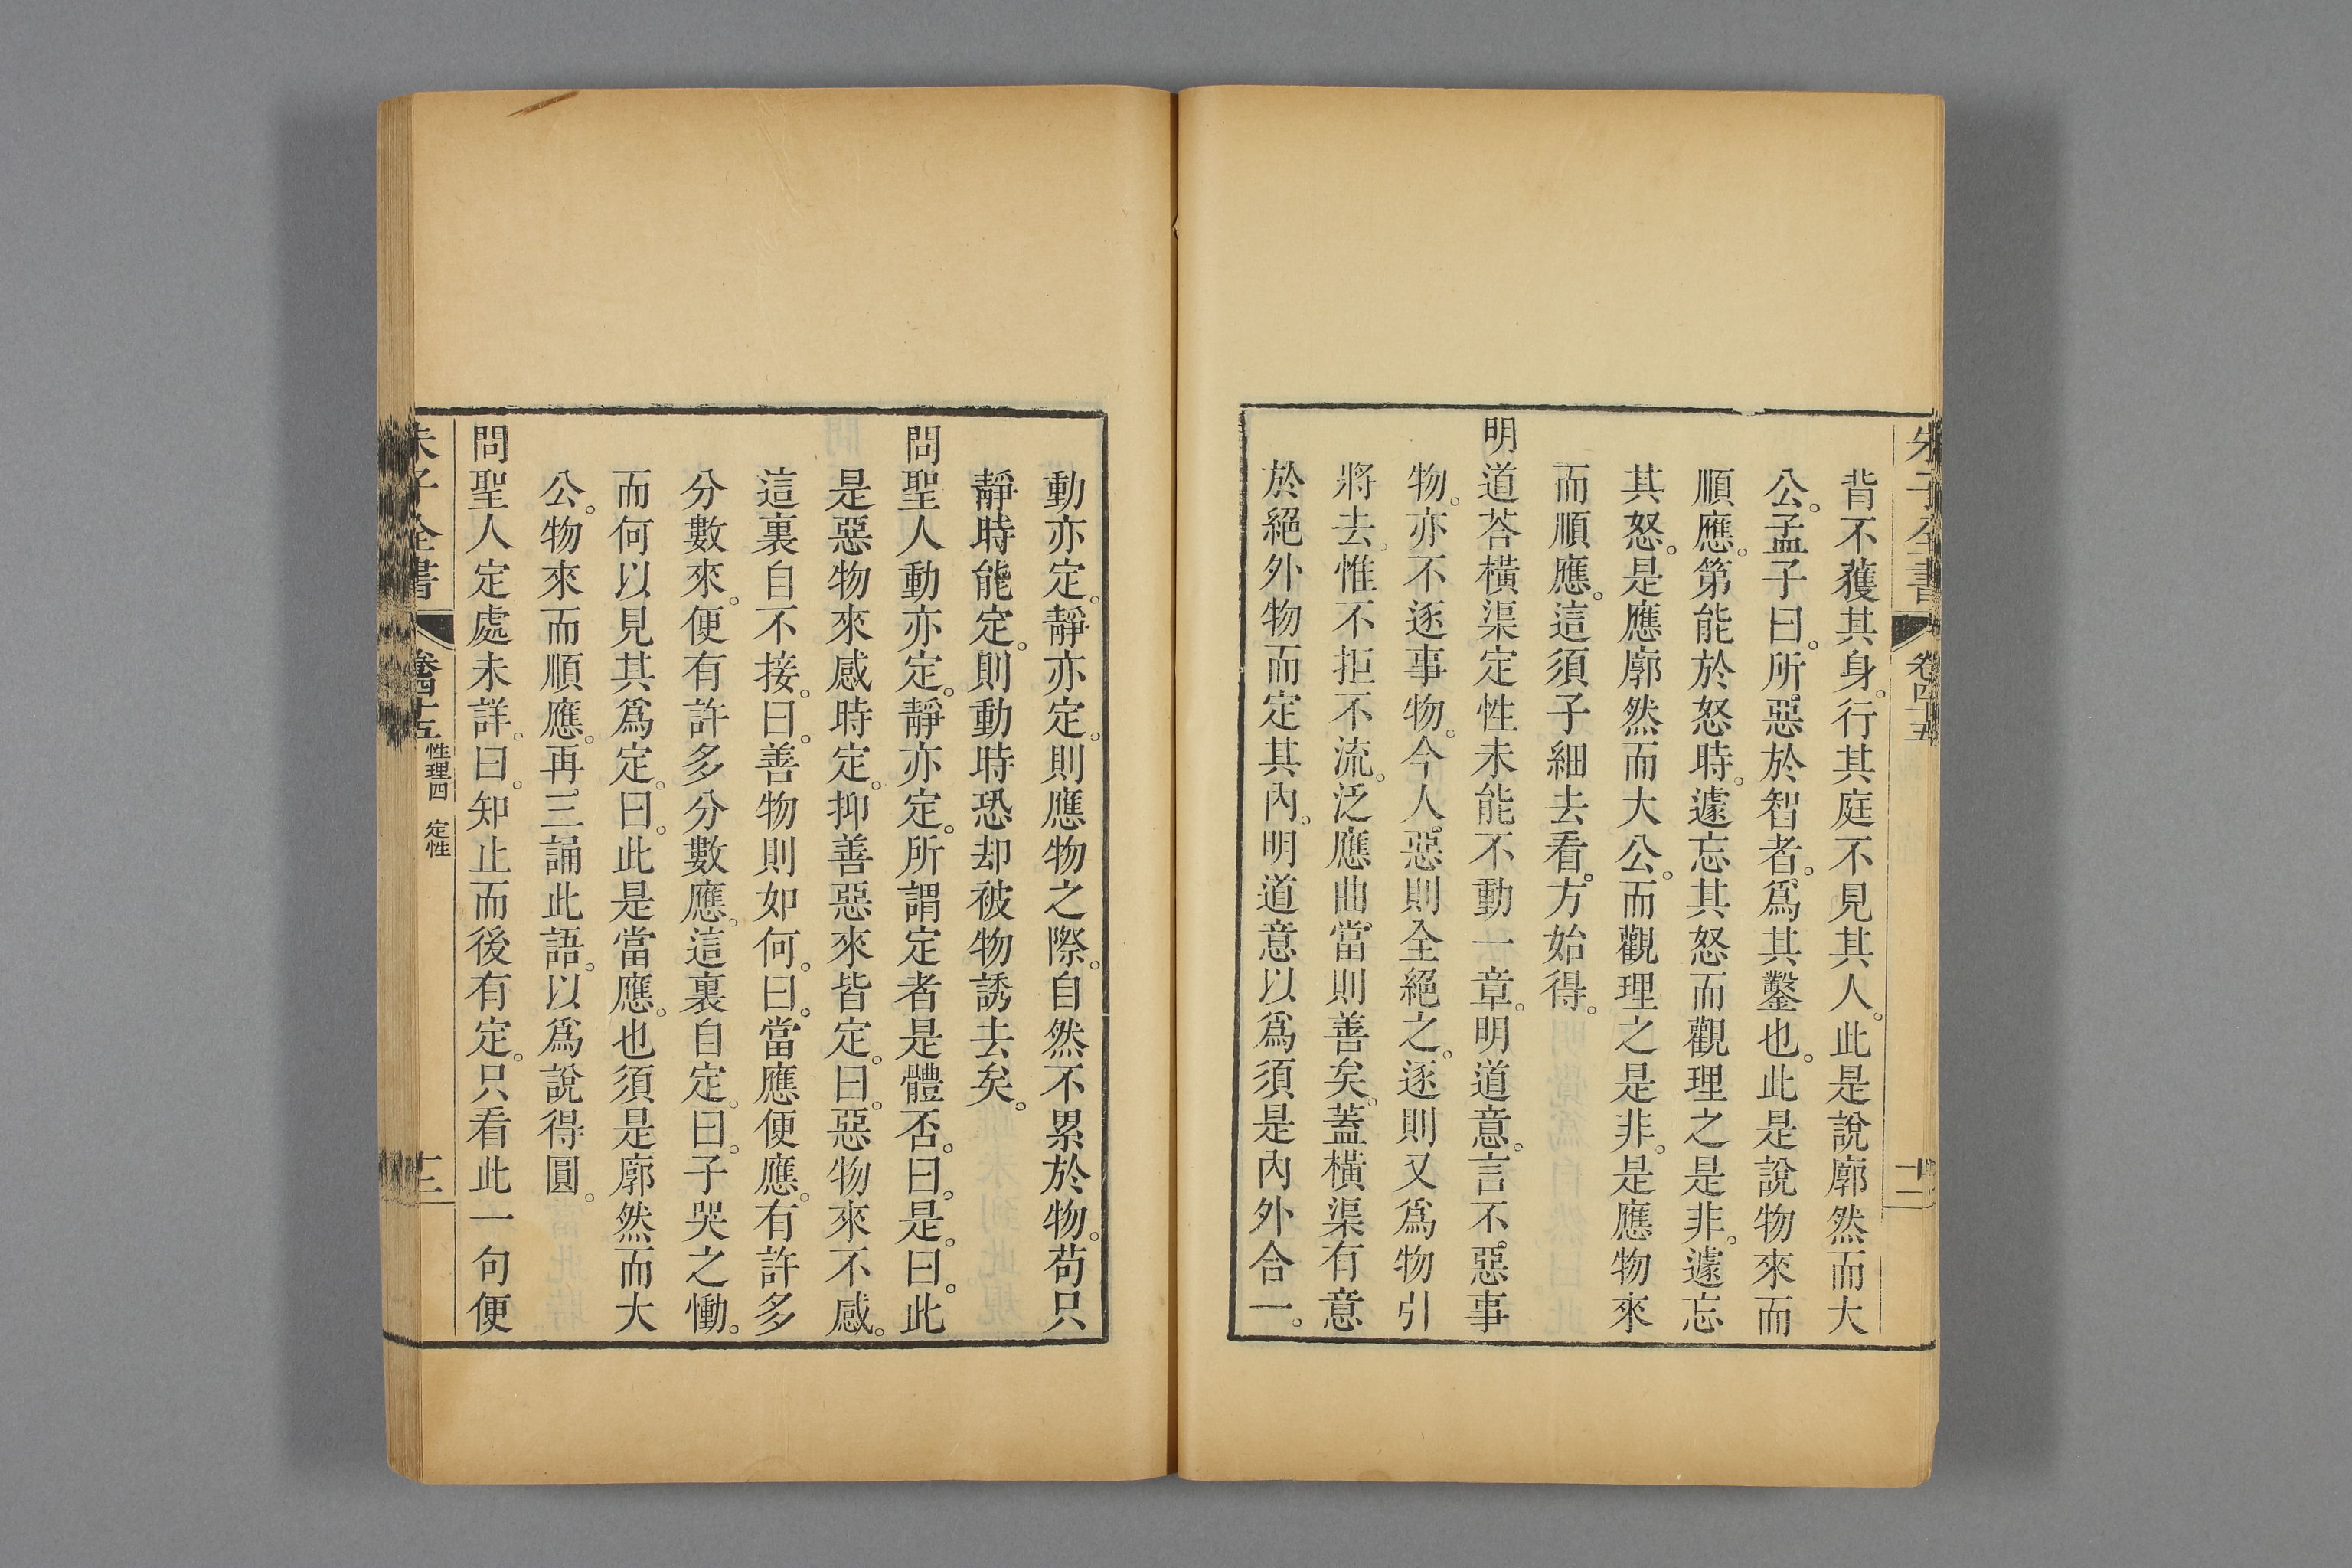 朱子全書 卷四十五 十二
背不獲其身。行其庭不見其人。此是說廓然而大
公。孟子曰。所惡於智者。爲其鑿也。此是說物來而
順應。第能於怒時。遽忘其怒而觀理之是非。遽忘
其怒。是應廓然而大公。而觀理之是非。是應物來
而順應。這須子細去看。方始得。
明道荅橫渠定性未能不動一章。明道意。言不惡事
物。亦不逐事物。今人惡則全絕之。逐則又爲物引
將去。惟不拒不流。泛應曲當。則善矣。蓋橫渠有意
於絕外物而定其內。明道意以爲須是內外合一。
動亦定。靜亦定。則應物之際。自然不累於物。苟只
靜時能定。則動時恐却被物誘去矣。
問聖人動亦定。靜亦定。所謂定者是體否。曰。是。曰。此
是惡物來感時定。抑善惡來皆定。曰。惡物來不感。
這裏自不接。曰。善物則如何。曰。當應便應。有許多
分數來。便有許多分數應。這裏自定。曰。子哭之慟。
而何以見其爲定。曰。此是當應。也須是廓然而大
公。物來而順應。再三誦此語。以爲說得圓。
問聖人定處未詳。曰。知止而後有定。只看此一句便
朱子全書 卷四十五 性理四 定性